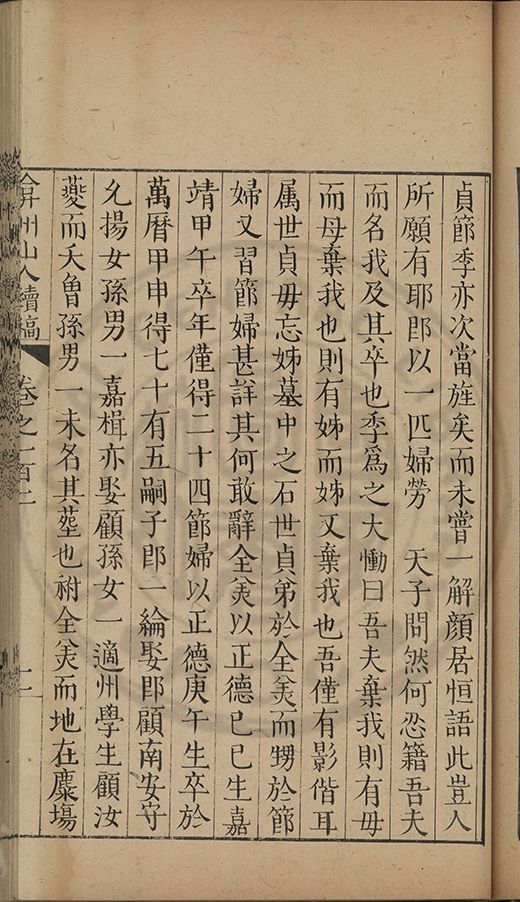 貞節季亦次當旌矣而未嘗一解顏居恒語此豈人
所願有耶郎以一匹婦勞　天子問然何忍籍吾夫
而名我及其卒也季為之大慟曰吾夫棄我則有毋
而母棄我也則有姊而姊又棄我也吾僅有影偕耳
属世貞毋忘姊墓中之石世貞弟於全美而甥於節
婦又習節婦甚詳其何敢辭全美以正德己巳生嘉
靖甲午卒年僅得二十四節婦以正德庚午生卒於
萬曆甲申得七十有五嗣子郎一綸娶郎顧南安守
允揚女孫男一嘉楫亦娶顧孫女一適州學生顧汝
夔而夭曾孫男一未名其塟也祔全美而地在麋塲
弇州山人續稿　卷之一百二　十一